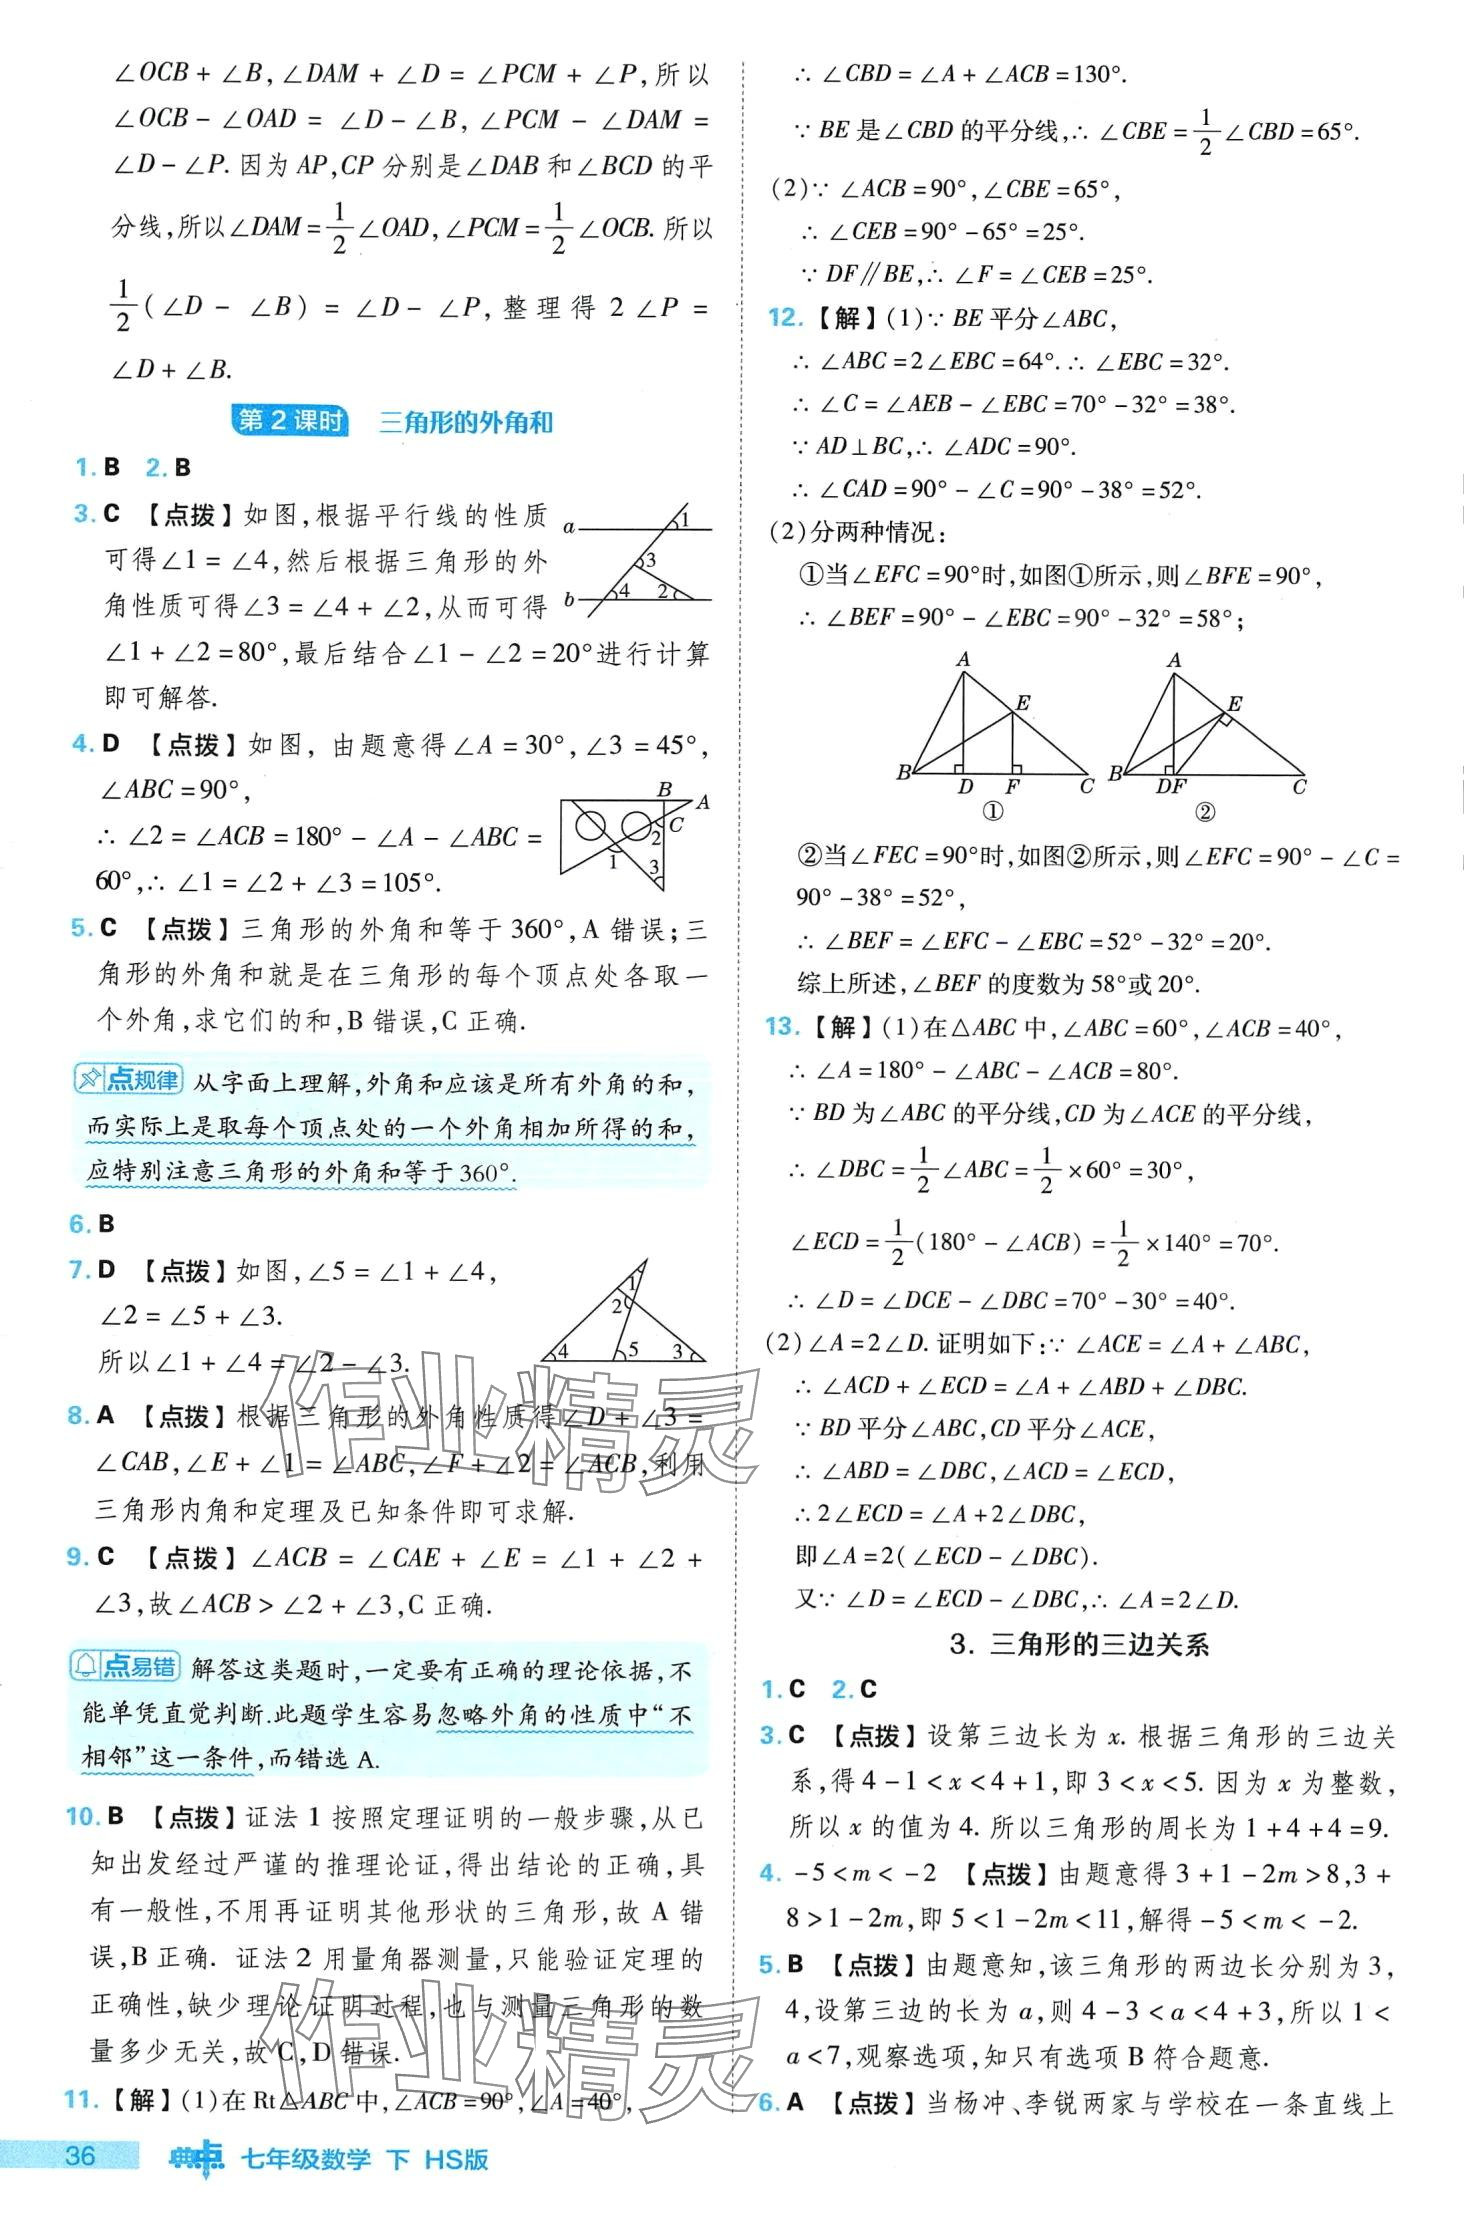 ∠OCB + ∠B, ∠DAM + ∠D = ∠PCM + ∠P, 所以
∠OCB - ∠OAD = ∠D - ∠B, ∠PCM - ∠DAM =
∠D - ∠P. 因为 AP, CP 分别是∠DAB 和∠BCD 的平
分线, 所以∠DAM = 1/2 ∠OAD, ∠PCM = 1/2 ∠OCB. 所以
1/2 (∠D - ∠B) = ∠D - ∠P, 整理得 2∠P =
∠D + ∠B.
第 2 课时 三角形的外角和
1. B 2. B
3. C 【点拨】如图, 根据平行线的性质
可得∠1 = ∠4, 然后根据三角形的外
角性质可得∠3 = ∠4 + ∠2, 从而可得
∠1 + ∠2 = 80°, 最后结合∠1 - ∠2 = 20°进行计算
即可解答.
a 1 3 b 4 2
4. D 【点拨】如图, 由题意得∠A = 30°, ∠3 = 45°,
∠ABC = 90°,
∴ ∠2 = ∠ACB = 180° - ∠A - ∠ABC =
60°, ∴ ∠1 = ∠2 + ∠3 = 105°.
B A C 2 1 3
5. C 【点拨】三角形的外角和等于 360°, A 错误; 三
角形的外角和就是在三角形的每个顶点处各取一
个外角, 求它们的和, B 错误, C 正确.
点规律 从字面上理解, 外角和应该是所有外角的和,
而实际上是取每个顶点处的一个外角相加所得的和,
应特别注意三角形的外角和等于 360°.
6. B
7. D 【点拨】如图, ∠5 = ∠1 + ∠4,
∠2 = ∠5 + ∠3.
所以∠1 + ∠4 = ∠2 - ∠3.
1 2 4 5 3
8. A 【点拨】根据三角形的外角性质得∠D + ∠3 =
∠CAB, ∠E + ∠1 = ∠ABC, ∠F + ∠2 = ∠ACB, 利用
三角形内角和定理及已知条件即可求解.
9. C 【点拨】∠ACB = ∠CAE + ∠E = ∠1 + ∠2 +
∠3, 故∠ACB > ∠2 + ∠3, C 正确.
点易错 解答这类题时, 一定要有正确的理论依据, 不
能单凭直觉判断. 此题学生容易忽略外角的性质中“不
相邻”这一条件, 而错选 A.
10. B 【点拨】证法 1 按照定理证明的一般步骤, 从已
知出发经过严谨的推理论证, 得出结论的正确, 具
有一般性, 不用再证明其他形状的三角形, 故 A 错
误, B 正确. 证法 2 用量角器测量, 只能验证定理的
正确性, 缺少理论证明过程, 也与测量三角形的数
量多少无关, 故 C, D 错误.
11. 【解】(1)在 Rt△ABC 中, ∠ACB = 90°, ∠A = 40°,
36 典中点 七年级数学 下 HS版
∴ ∠CBD = ∠A + ∠ACB = 130°.
∵ BE 是∠CBD 的平分线, ∴ ∠CBE = 1/2 ∠CBD = 65°.
(2)∵ ∠ACB = 90°, ∠CBE = 65°,
∴ ∠CEB = 90° - 65° = 25°.
∵ DF∥BE, ∴ ∠F = ∠CEB = 25°.
12. 【解】(1)∵ BE 平分∠ABC,
∴ ∠ABC = 2∠EBC = 64°. ∴ ∠EBC = 32°.
∴ ∠C = ∠AEB - ∠EBC = 70° - 32° = 38°.
∵ AD⊥BC, ∴ ∠ADC = 90°.
∴ ∠CAD = 90° - ∠C = 90° - 38° = 52°.
(2)分两种情况:
①当∠EFC = 90°时, 如图①所示, 则∠BFE = 90°,
∴ ∠BEF = 90° - ∠EBC = 90° - 32° = 58°;
A E B D F C ①
A E B DF C ②
②当∠FEC = 90°时, 如图②所示, 则∠EFC = 90° - ∠C =
90° - 38° = 52°,
∴ ∠BEF = ∠EFC - ∠EBC = 52° - 32° = 20°.
综上所述, ∠BEF 的度数为 58°或 20°.
13. 【解】(1)在△ABC 中, ∠ABC = 60°, ∠ACB = 40°,
∴ ∠A = 180° - ∠ABC - ∠ACB = 80°.
∵ BD 为∠ABC 的平分线, CD 为∠ACE 的平分线,
∴ ∠DBC = 1/2 ∠ABC = 1/2 × 60° = 30°,
∠ECD = 1/2 (180° - ∠ACB) = 1/2 × 140° = 70°.
∴ ∠D = ∠DCE - ∠DBC = 70° - 30° = 40°.
(2)∠A = 2∠D. 证明如下: ∵ ∠ACE = ∠A + ∠ABC,
∴ ∠ACD + ∠ECD = ∠A + ∠ABD + ∠DBC.
∵ BD 平分∠ABC, CD 平分∠ACE,
∴ ∠ABD = ∠DBC, ∠ACD = ∠ECD,
∴ 2∠ECD = ∠A + 2∠DBC,
即∠A = 2(∠ECD - ∠DBC).
又∵ ∠D = ∠ECD - ∠DBC, ∴ ∠A = 2∠D.
3. 三角形的三边关系
1. C 2. C
3. C 【点拨】设第三边长为 x. 根据三角形的三边关
系, 得 4 - 1 < x < 4 + 1, 即 3 < x < 5. 因为 x 为整数,
所以 x 的值为 4. 所以三角形的周长为 1 + 4 + 4 = 9.
4. -5 < m < -2 【点拨】由题意得 3 + 1 - 2m > 8, 3 +
8 > 1 - 2m, 即 5 < 1 - 2m < 11, 解得 -5 < m < -2.
5. B 【点拨】由题意知, 该三角形的两边长分别为 3,
4, 设第三边的长为 a, 则 4 - 3 < a < 4 + 3, 所以 1 <
a < 7, 观察选项, 知只有选项 B 符合题意.
6. A 【点拨】当杨冲、李锐两家与学校在一条直线上
作业精灵
作业精灵